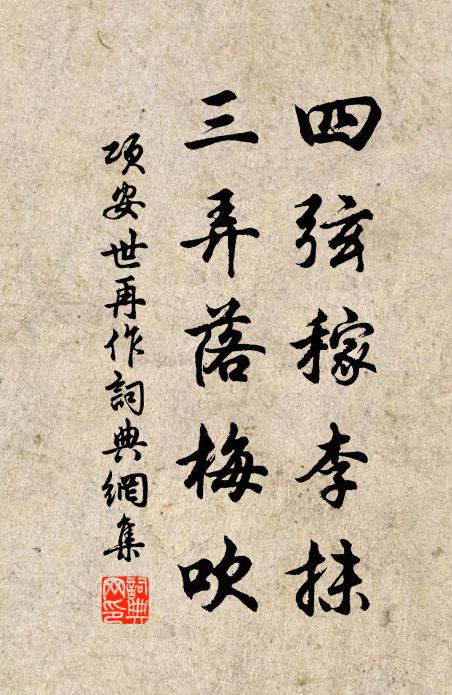 四弦稼李抹
三弄落梅吹
項安世再作詞典網集
詞典网印